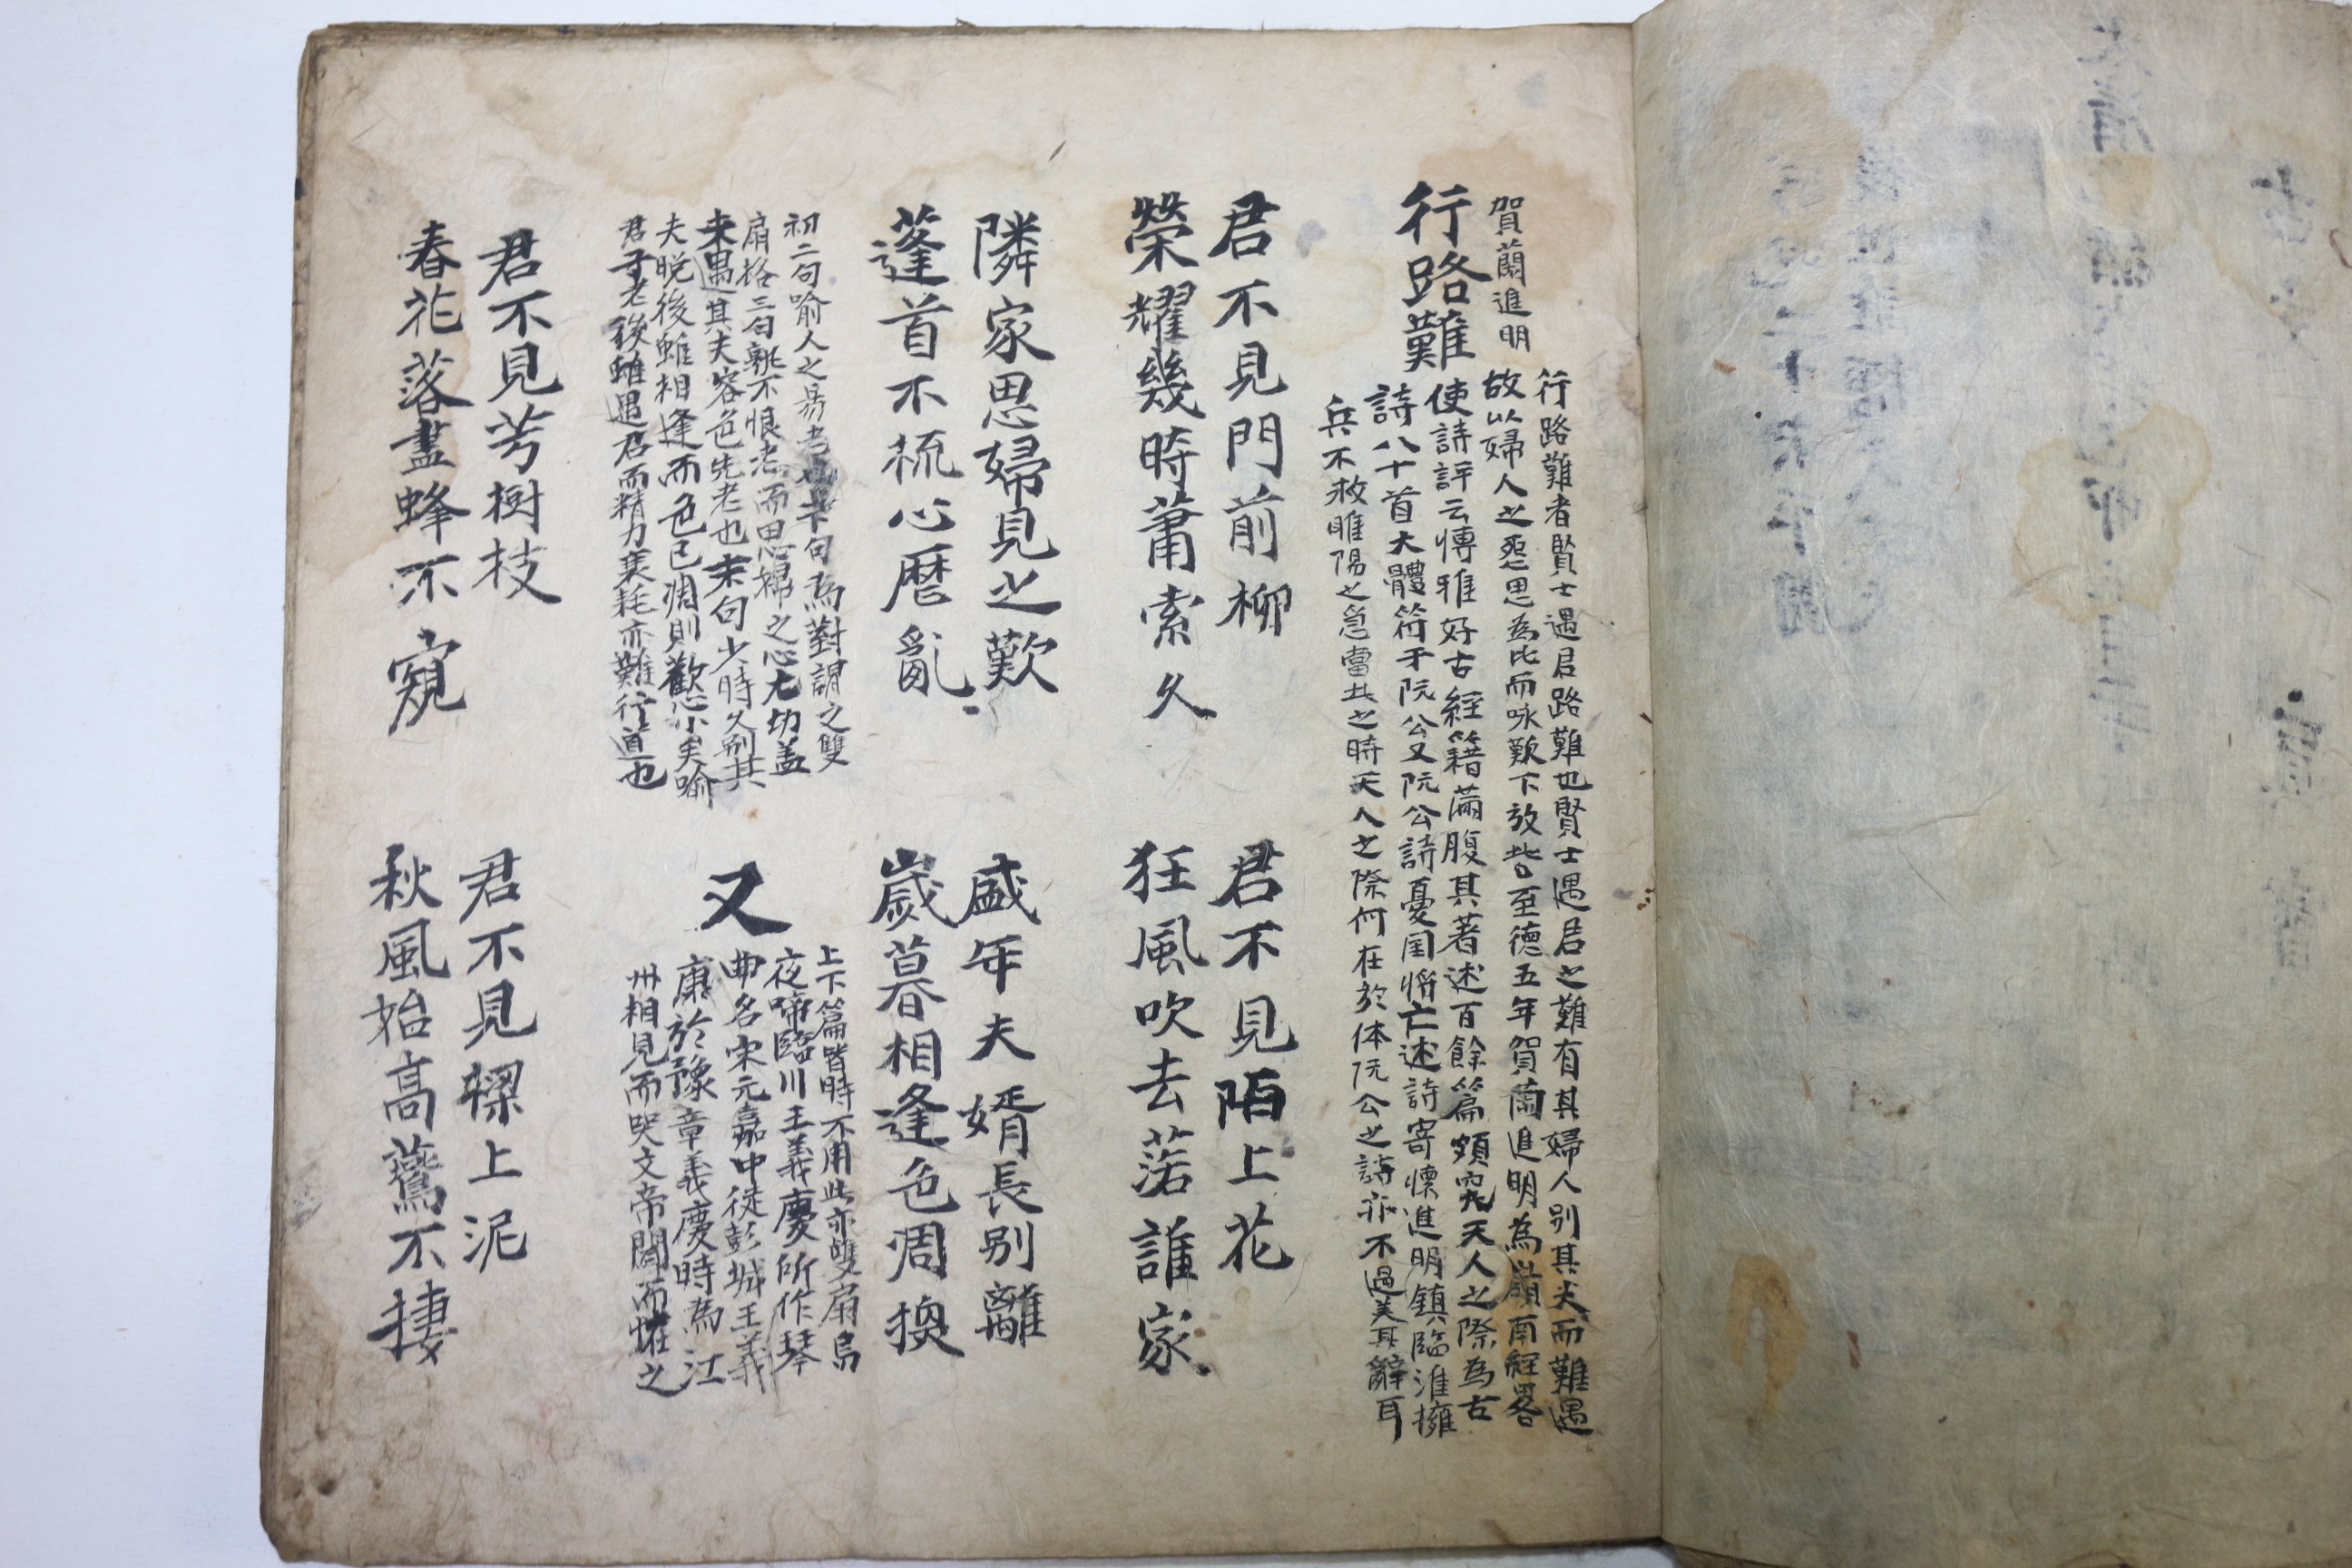 賀蘭進明
行路難
行路難者賢士遇君路難也賢士遇君之難有其婦人別其夫而難遇
故以婦人之怨思為比而咏歎下放此至德五年賀蘭進明為嶺南經畧
使詩評云慱雅好古經籍滿腹其著述百餘篇頗究天人之際為古
詩八十首大體符于阮公又阮公詩憂国將亡述詩寄懷進明鎮臨淮擁
兵不救睢陽之急當此之時天人之際何在於体阮公之詩亦不過美其辭耳
君不見門前柳
榮耀幾時蕭索久
君不見陌上花
狂風吹去落誰家
隣家思婦見之歎
蓬首不梳心曆亂
盛年夫婿長別離
歲暮相逢色凋換
初二句喻人之易老也 句為對謂之雙
扇格三句孰不恨老而思婦之心尤切盖
来遇其夫容色先老也末句少時久別其
夫晚後雖相逢而色已凋則歡心小矣喻
君子老後雖遇君而精力衰耗亦難行道也
又
上下篇皆時不用此亦雙扇烏
夜啼臨川王義慶所作琴
曲名宋元嘉中徙彭城王義
康於豫章義慶時為江
州相見而哭文帝聞而怪之
君不見芳樹枝
春花落盡蜂不窺
君不見樑上泥
秋風始高鷰不捿